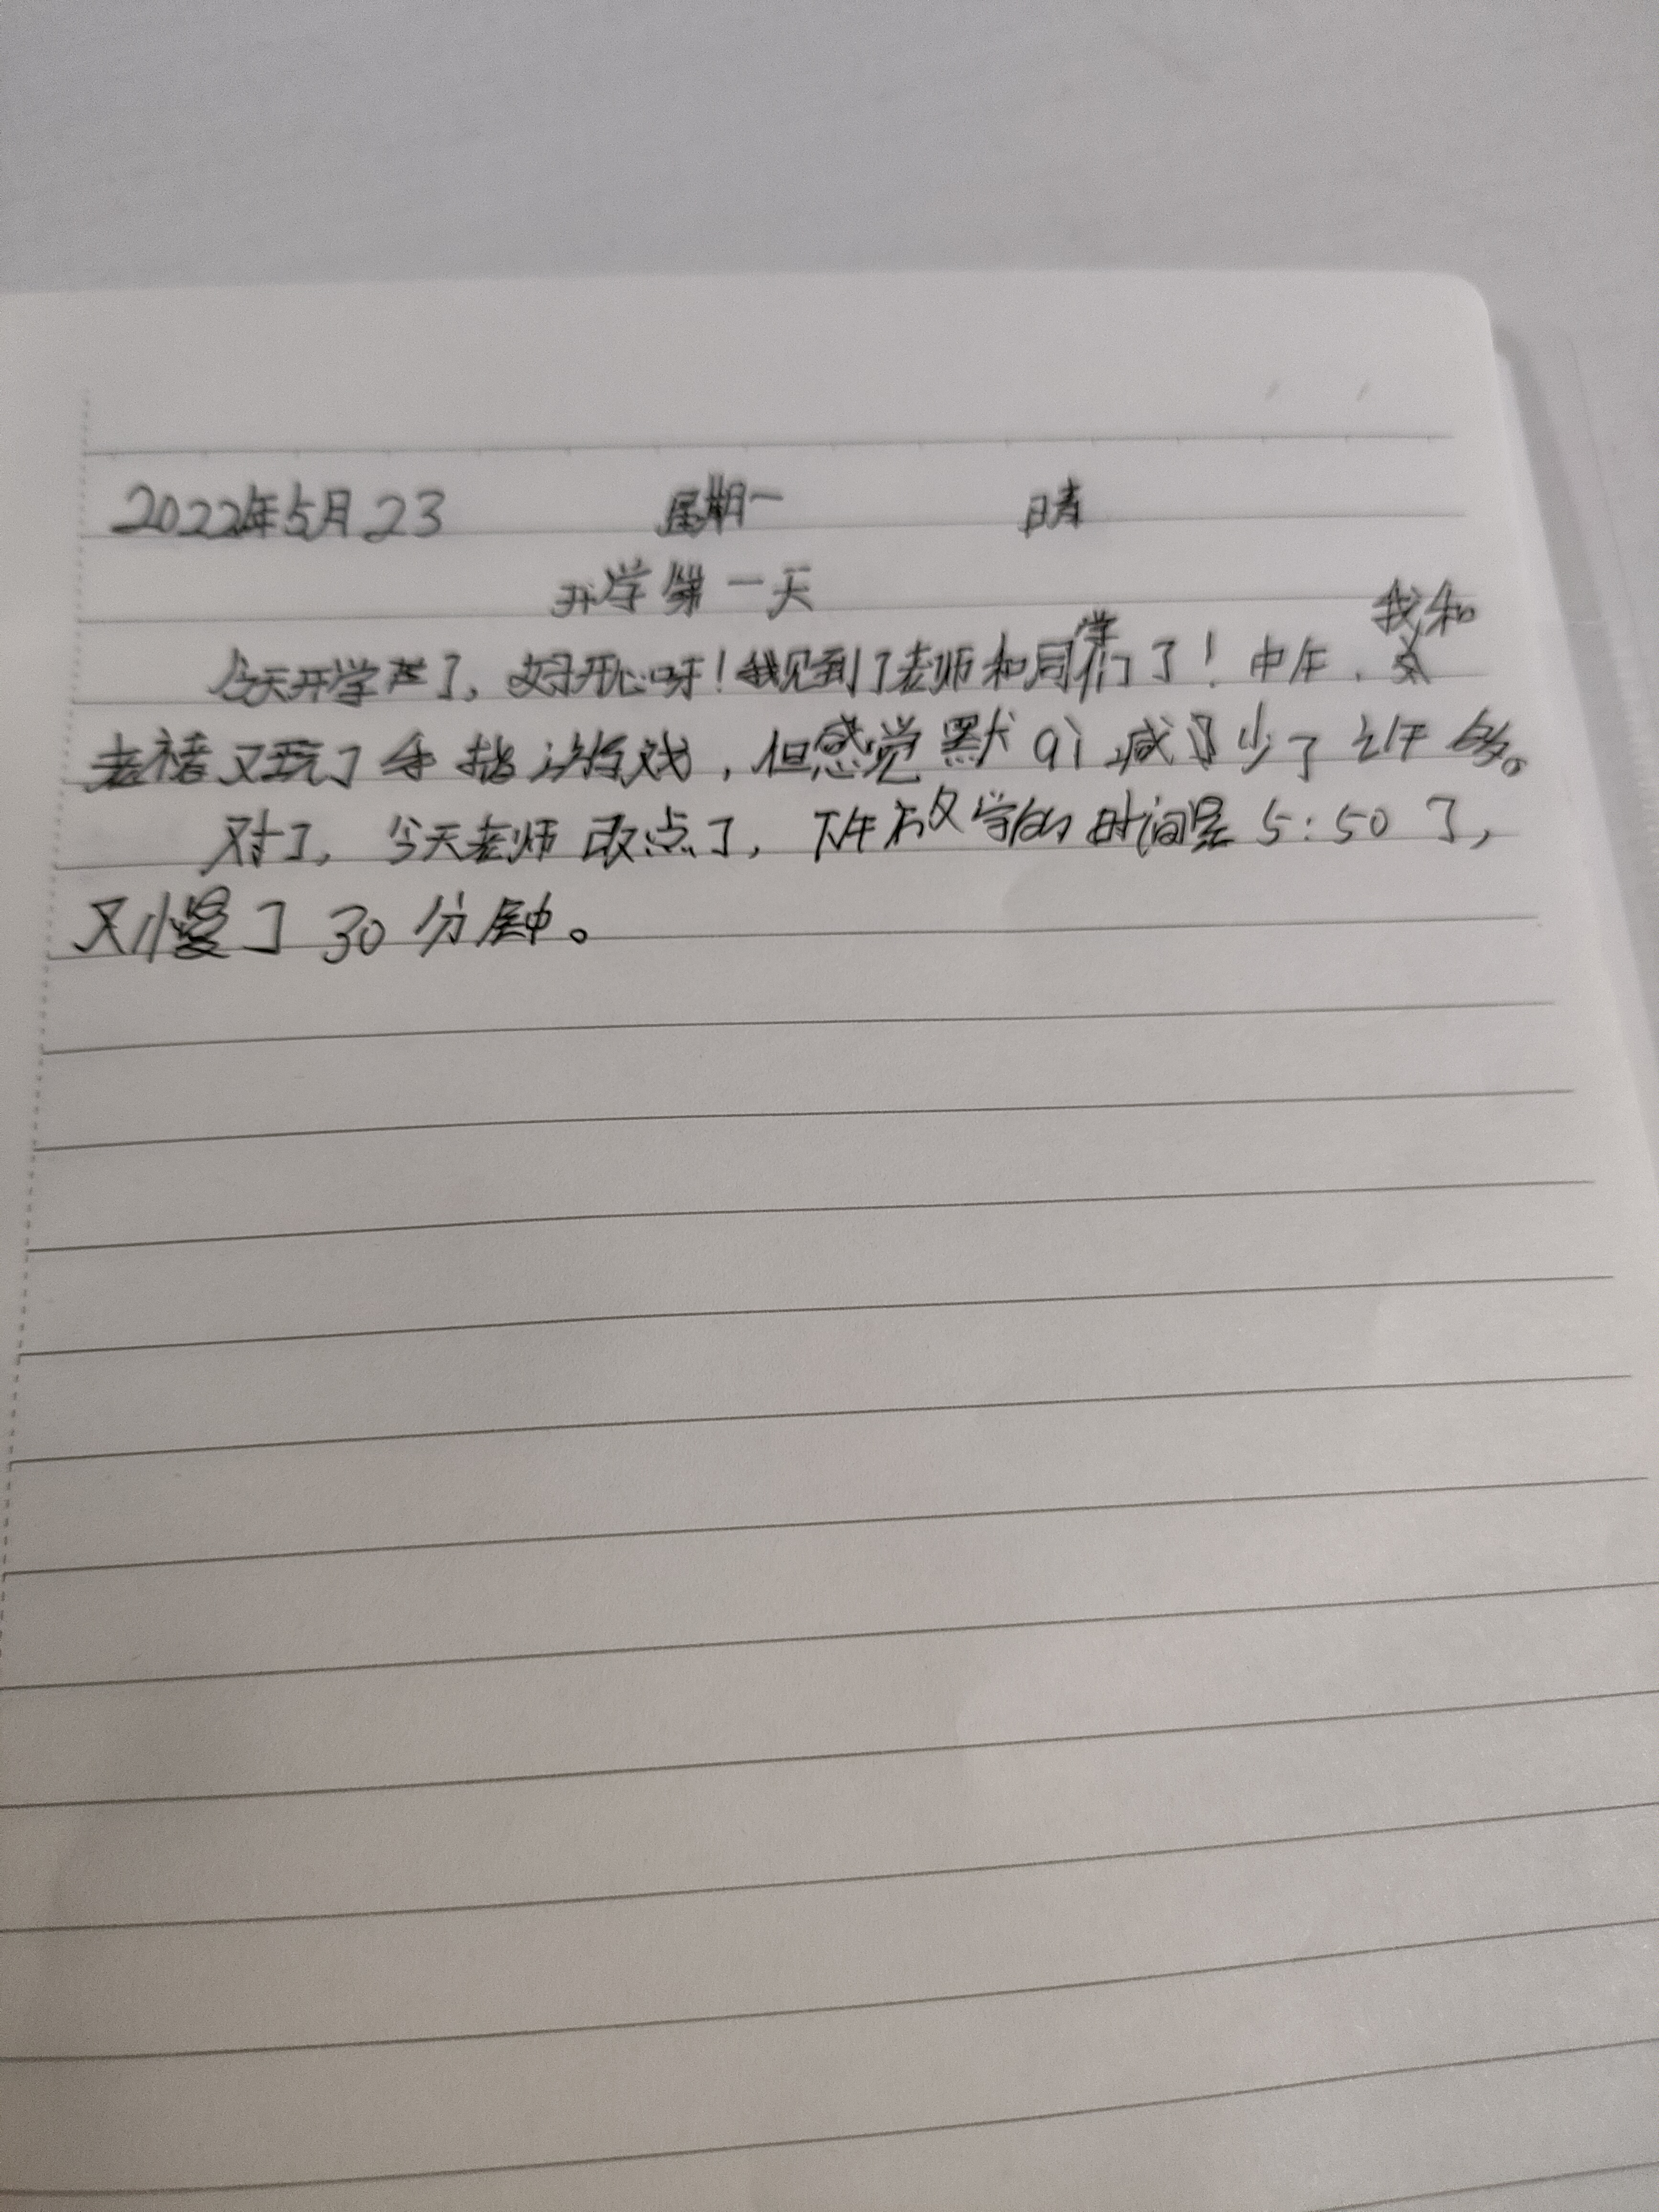 2022年5月23 星期一 晴
开学第一天
今天开学了,好开心呀!我见到了老师和同学们了!中午,我和
老褚又玩了手指游戏,但感觉默qi减少了许多。
对了,今天老师改点了,下午放学的时间是5:50了,
又慢了30分钟。